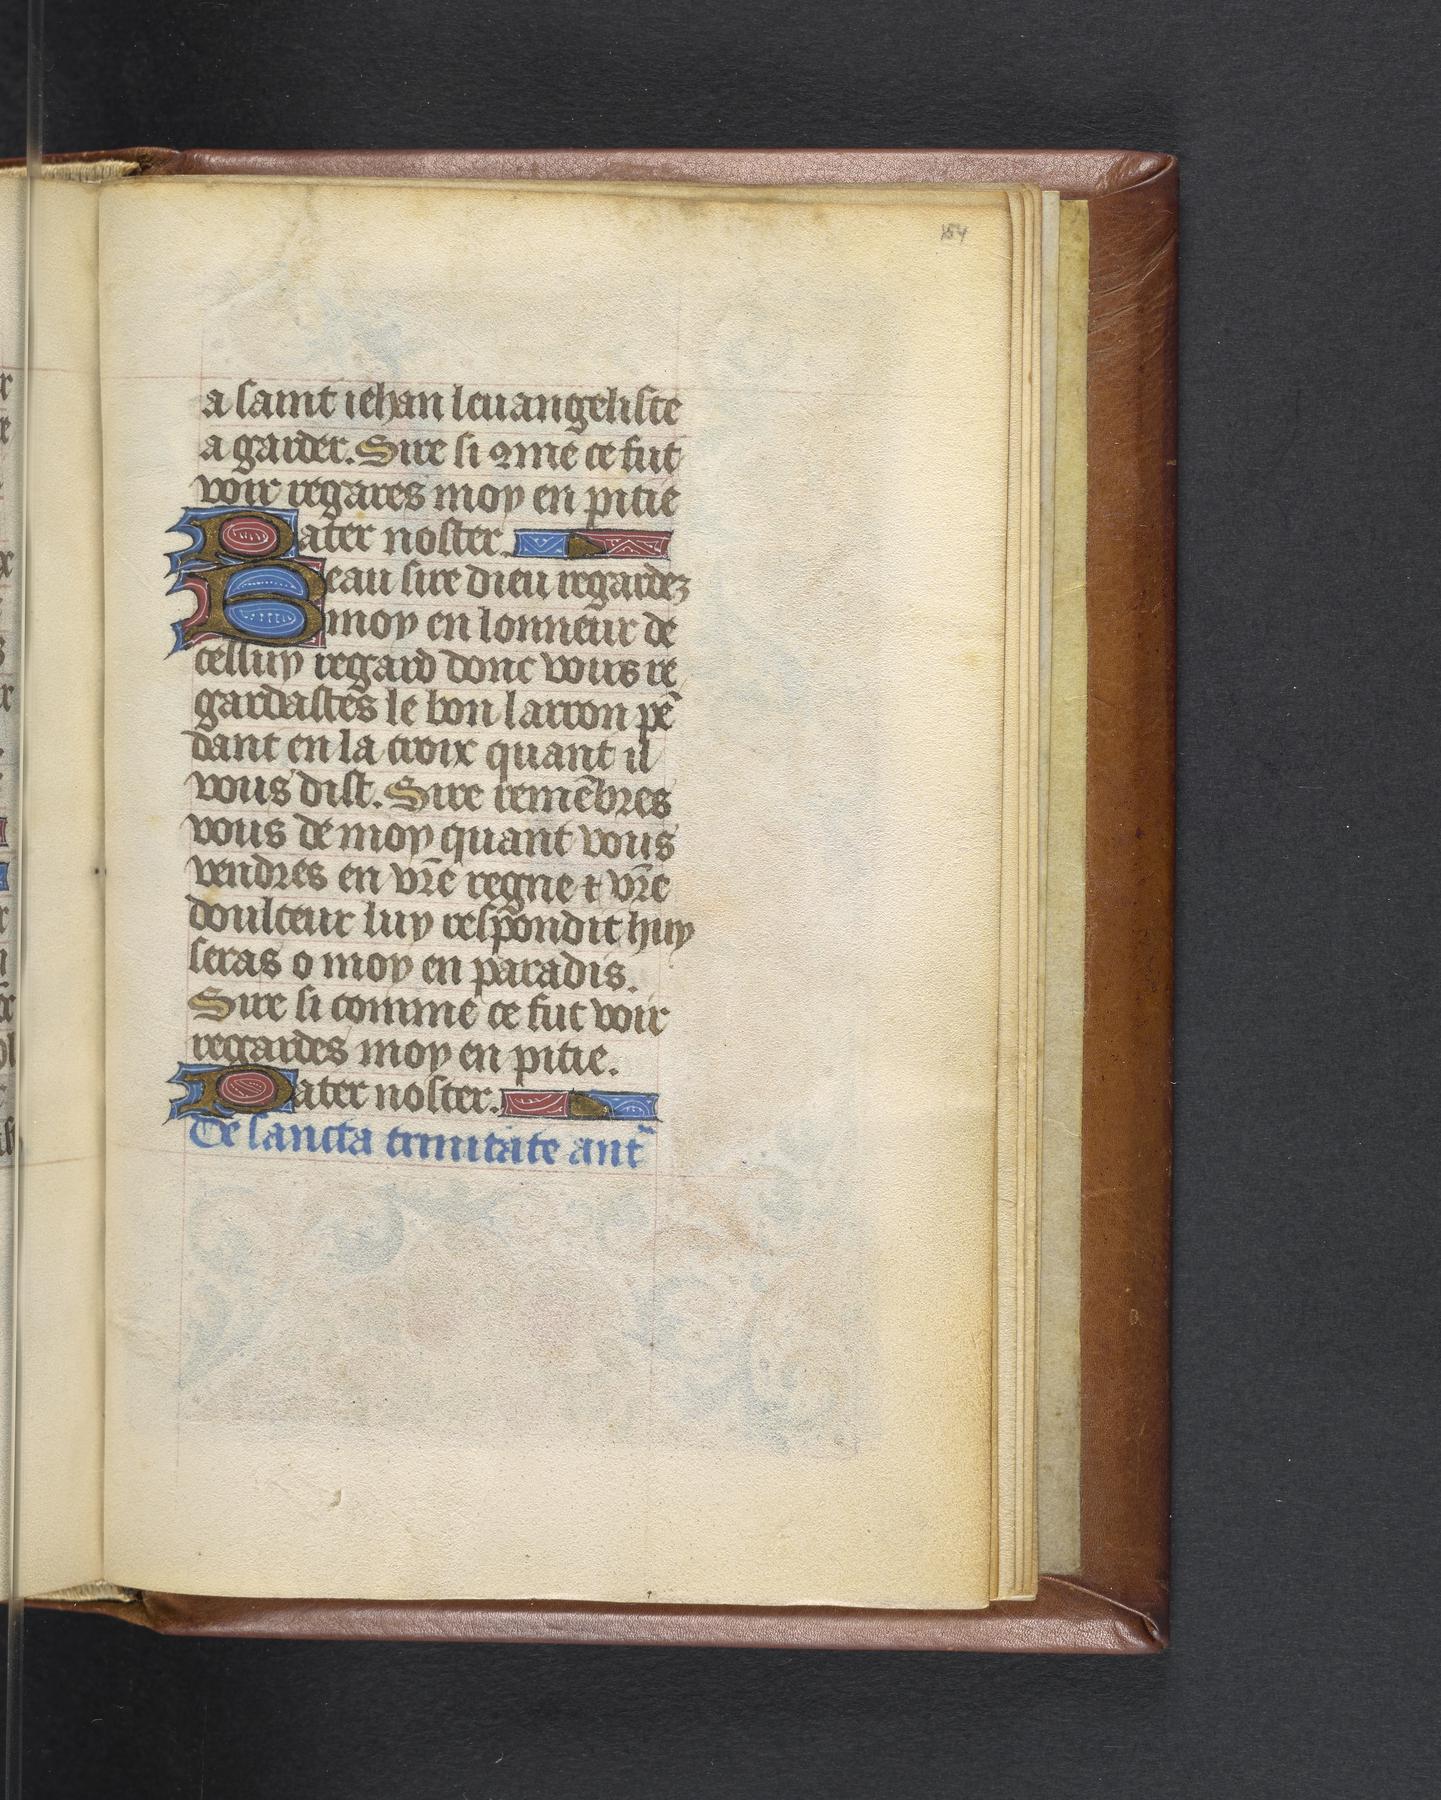 154
a saint iehan leuangeliste
a garder. Sire si 9me ce fut
voir regares moy en pitie
Pater noster.
Beau sire dieu regardez
moy en lonneur de
celluy regard donc vous re
gardastes le bon larron pē
dant en la croix quant il
vous dist. Sire remēbres
vous de moy quant vous
vendres en vr̄e regne ⁊ vr̄e
doulceur luy respondit huy
seras o moy en paradis.
Sire si comme ce fut voir
regardes moy en pitie.
Pater noster.
De sancta trinitate ant̄